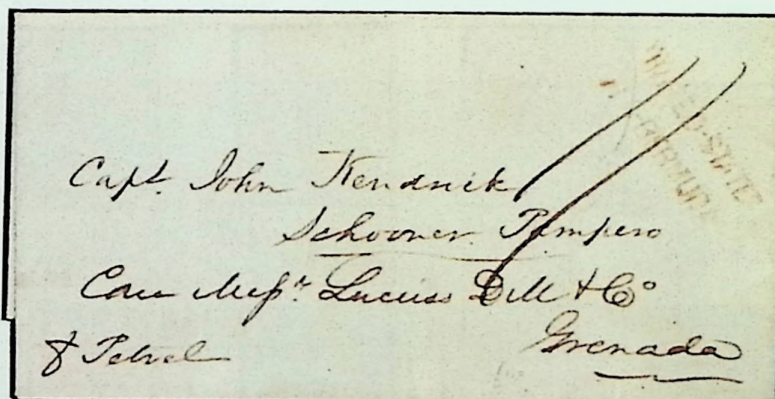 Capt. John Kendrick
Schooner Pampero
Care Messrs. Lucius Dill & Co
Grenada
Petrel